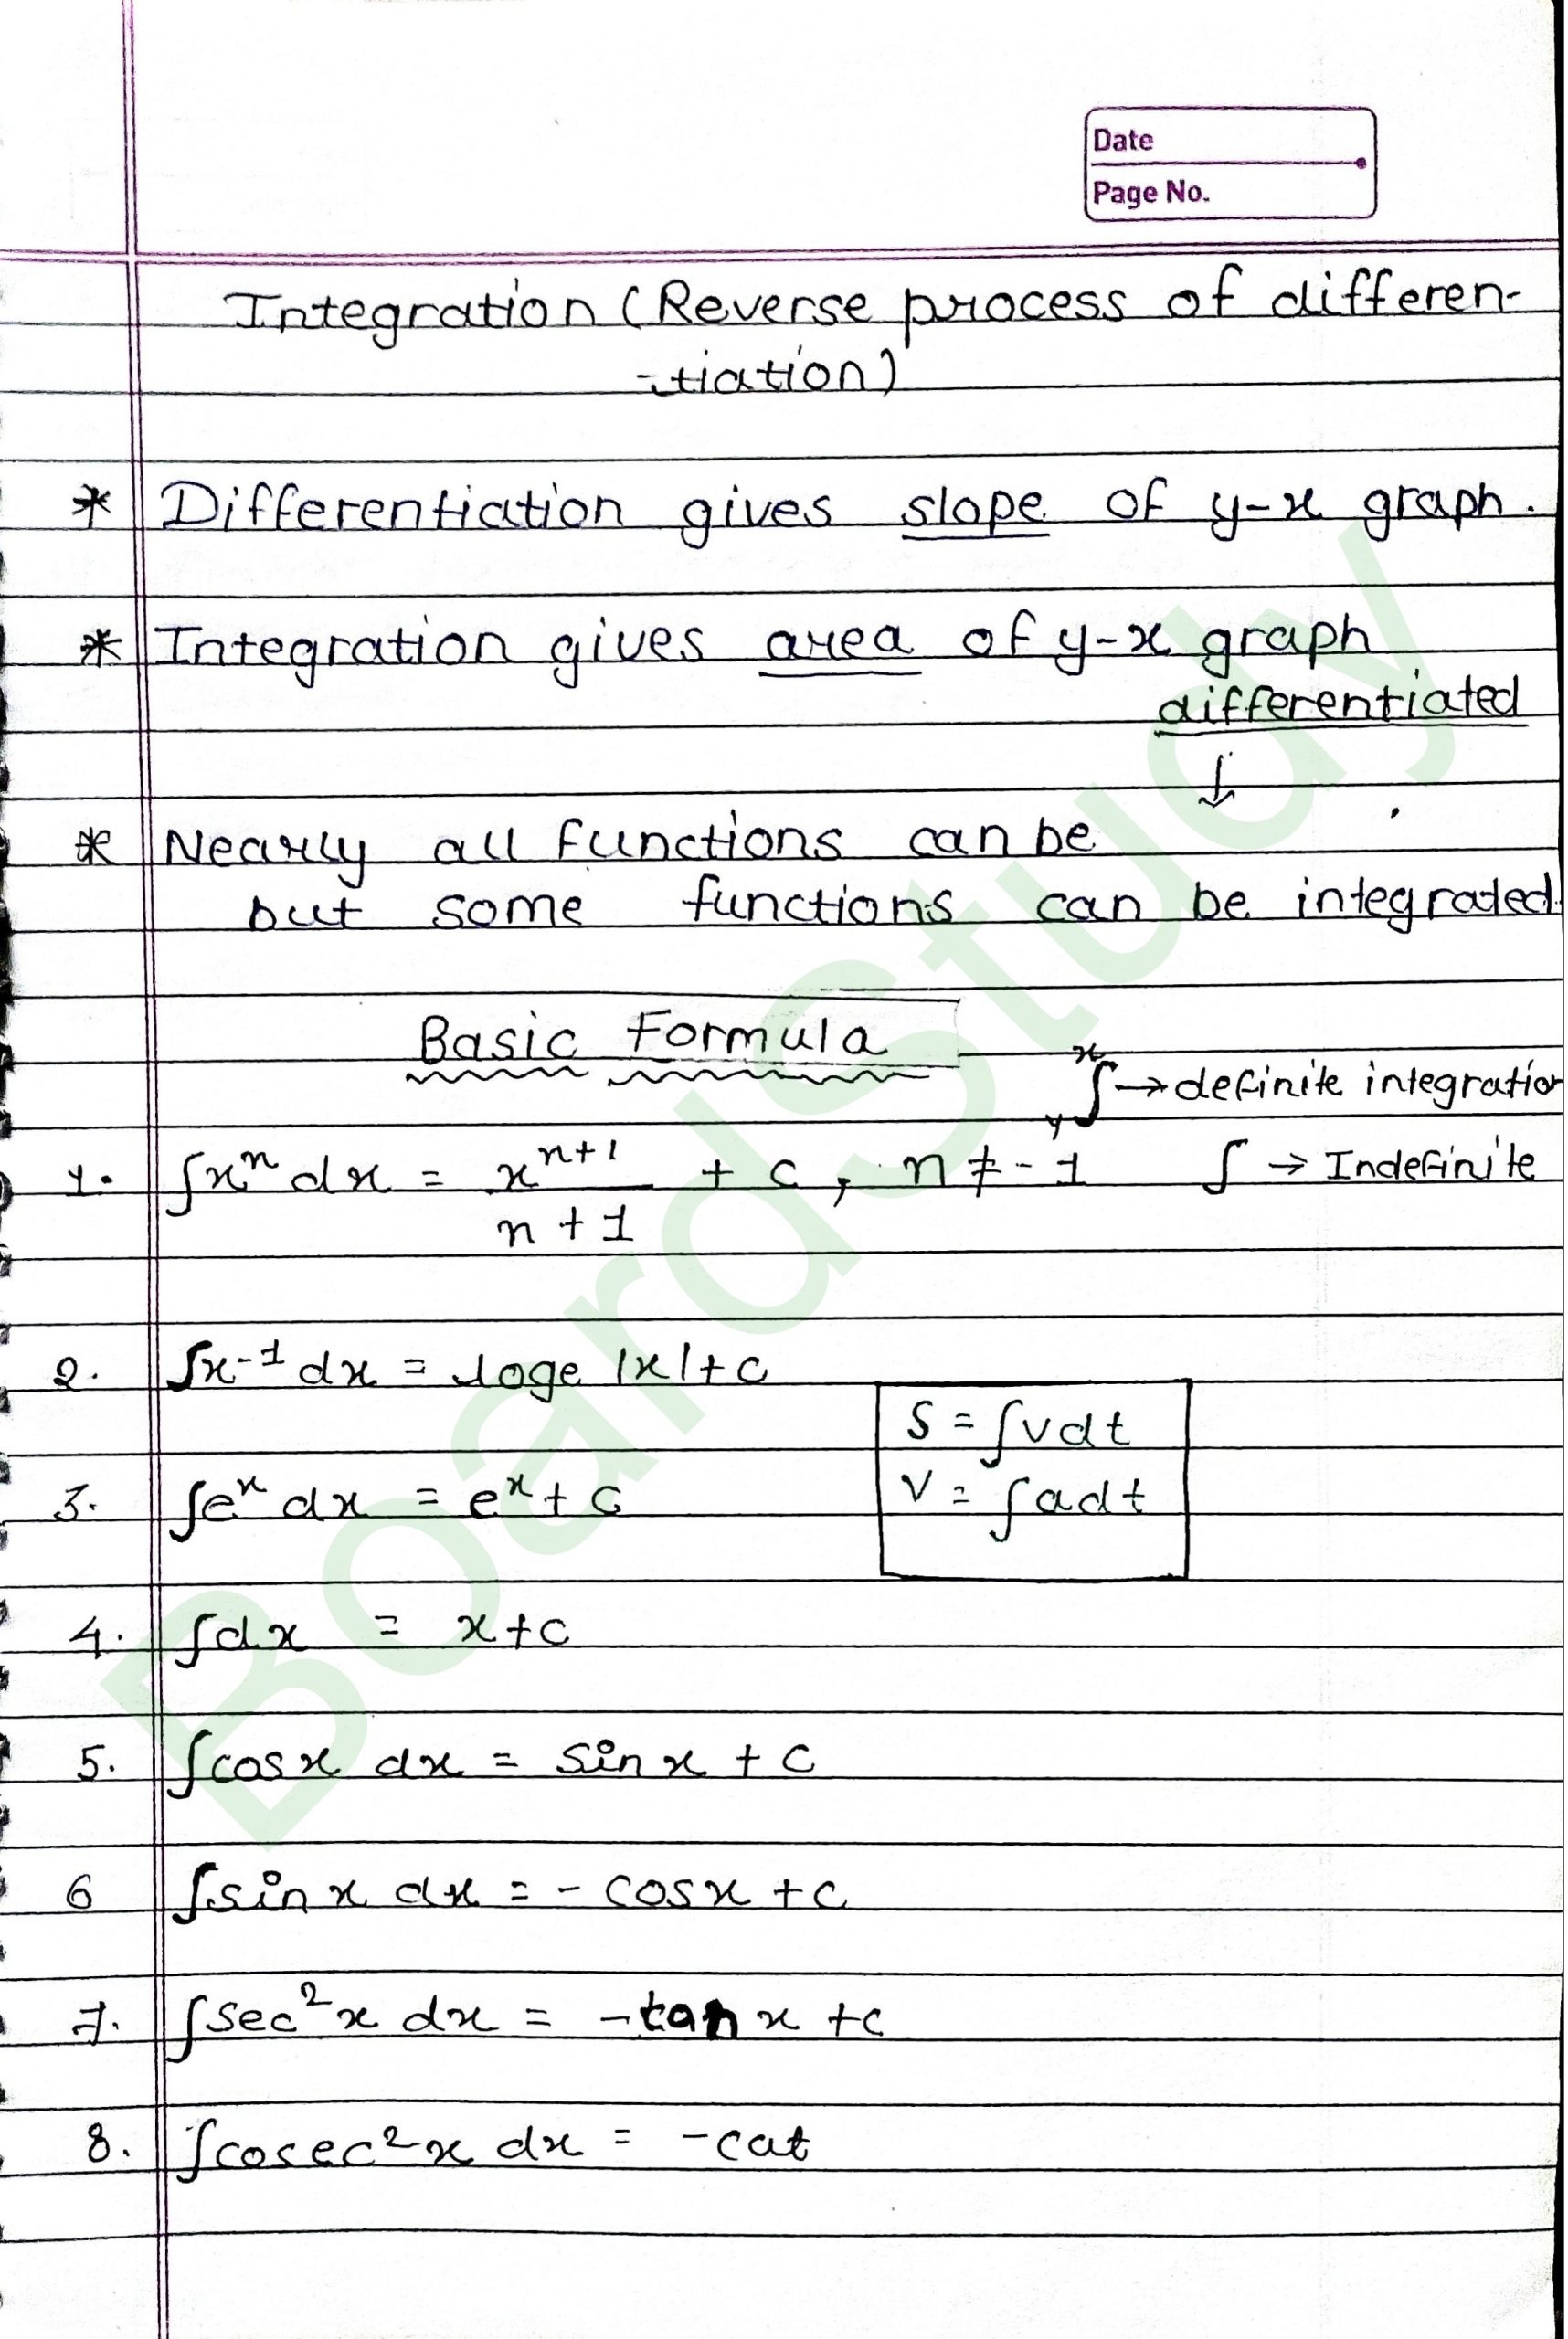 Date
Page No.
Integration (Reverse process of differen-
-tiation)
* Differentiation gives slope of y-x graph.
* Integration gives area of y-x graph
differentiated
↓
* Nearly all functions can be
but some functions can be integrated.
Basic Formula
x∫y → definite integration
1. ∫xⁿ dx = xⁿ⁺¹/n+1 + c, n ≠ -1
∫ → Indefinite
2. ∫x-1 dx = loge |x|+c
S = ∫vdt
3. ∫eˣ dx = eˣ + c
V = ∫adt
4. ∫dx = x+c
5. ∫cosx dx = sinx + c
6 ∫sinx dx = - cosx +c
7. ∫sec²x dx = -tanx +c
8. ∫cosec²x dx = -cat
BoardStudy